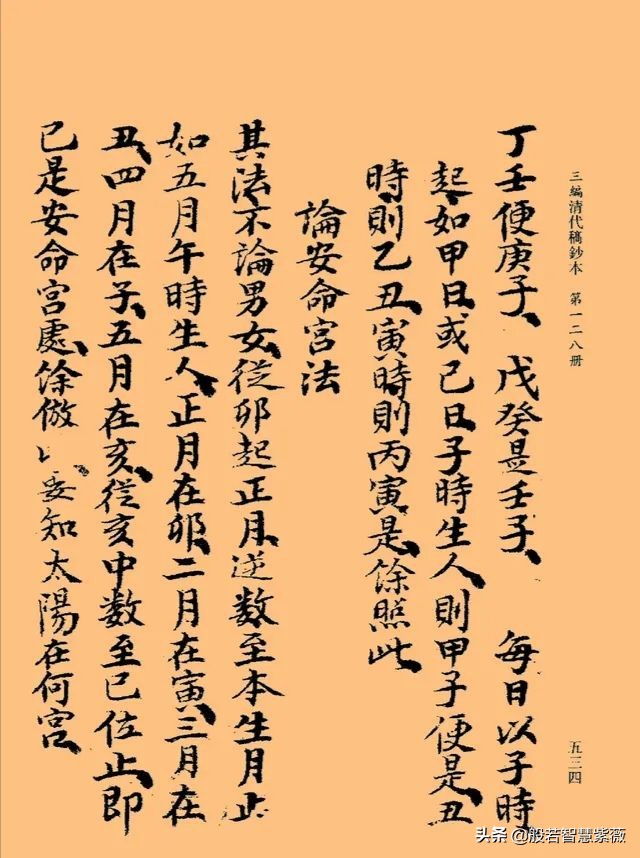 三編清代稿鈔本　第一二八册
五三四
丁壬便庚子、戊癸是壬子、　每日以子時
起如甲日或己日子時生人則甲子便是丑
時則乙丑寅時則丙寅是餘照此
論安命宮法
其法不論男女從卯起正月逆数至本生月止
如五月午時生人正月在卯二月在寅三月在
丑四月在子五月在亥從亥中数至巳位止即
已是安命宮處餘倣
要知太陽在何宮
头条 @般若智慧紫薇